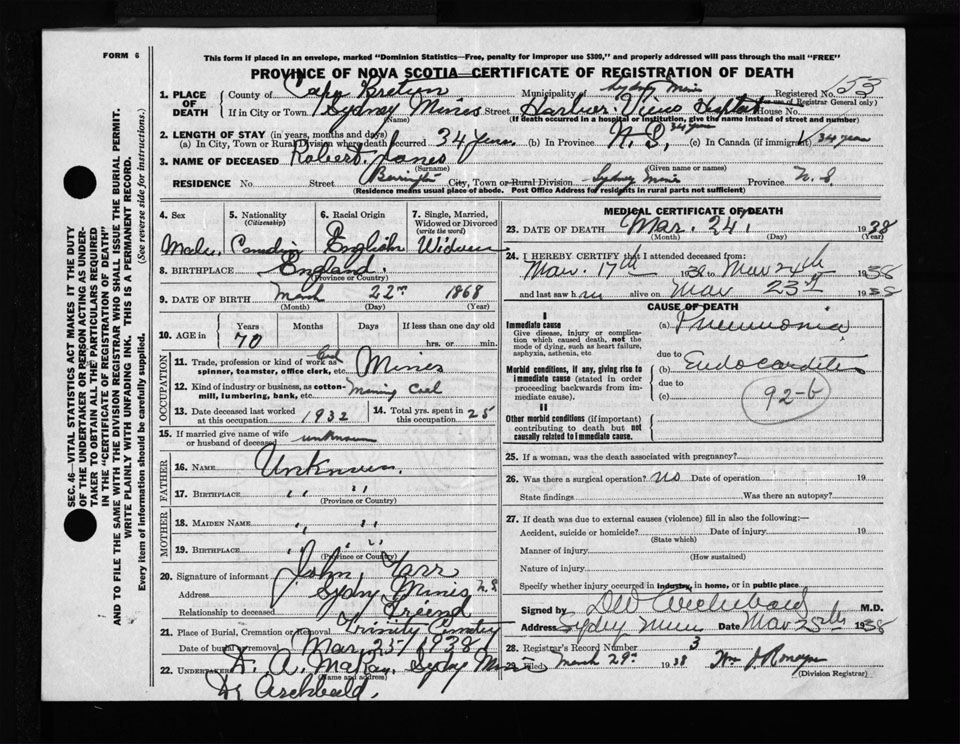 FORM 6
This form if placed in an envelope, marked "Dominion Statistics—Free, penalty for improper use $300," and properly addressed will pass through the mail "FREE"
PROVINCE OF NOVA SCOTIA—CERTIFICATE OF REGISTRATION OF DEATH
1. PLACE OF DEATH County of Cape Breton Municipality of Sydney Mines Registered No. 53
(For use of Registrar General only)
If in City or Town Sydney Mines Street Harbor View Hospital House No.
(Name) (If death occurred in a hospital or institution, give the name instead of street and number)
2. LENGTH OF STAY (in years, months and days)
(a) In City, Town or Rural Division where death occurred 34 years. (b) In Province N. S. 34 years (c) In Canada (if immigrant) 34 years
3. NAME OF DECEASED Robert Jones
(Surname) (Given name or names)
RESIDENCE No. Street City, Town or Rural Division Sydney Mines Province N. S.
(Residence means usual place of abode. Post Office Address for residents in rural parts not sufficient)
4. Sex 5. Nationality (Citizenship) 6. Racial Origin 7. Single, Married, Widowed or Divorced (write the word)
Male. English Widower
8. BIRTHPLACE England.
(Province or Country)
9. DATE OF BIRTH March 22nd 1868
(Month) (Day) (Year)
10. AGE in Years Months Days If less than one day old
70 hrs. or min.
OCCUPATION
11. Trade, profession or kind of work as spinner, teamster, office clerk, etc. Coal Miner
12. Kind of industry or business, as cotton-mill, lumbering, bank, etc. Mining Coal
13. Date deceased last worked at this occupation 1932 14. Total yrs. spent in this occupation 25
15. If married give name of wife or husband of deceased unknown
FATHER
16. NAME Unknown.
17. BIRTHPLACE " "
(Province or Country)
MOTHER
18. MAIDEN NAME " "
19. BIRTHPLACE " "
(Province or Country)
20. Signature of informant John
Address Sydney Mines N.S
Relationship to deceased Friend
21. Place of Burial, Cremation or Removal Trinity Cemetery
Date of burial or removal Mar 25/1938
22. UNDERTAKER D. A. Sydney Mines
(Name and address)
Dr Archibald.
MEDICAL CERTIFICATE OF DEATH
23. DATE OF DEATH Mar. 24, 1938
(Month) (Day) (Year)
24. I HEREBY CERTIFY that I attended deceased from:
Mar. 17th 1938 to Mar 24th 1938
and last saw him alive on Mar 23rd 1938
CAUSE OF DEATH
I
Immediate cause
Give disease, injury or complication which caused death, not the mode of dying, such as heart failure, asphyxia, asthenia, etc
(a) Pneumonia
due to
Morbid conditions, if any, giving rise to immediate cause (stated in order proceeding backwards from immediate cause).
(b) Endocarditis
due to
(c) 92-b
II
Other morbid conditions (if important) contributing to death but not causally related to immediate cause.
25. If a woman, was the death associated with pregnancy?
26. Was there a surgical operation? no Date of operation 19
State findings Was there an autopsy?
27. If death was due to external causes (violence) fill in also the following:—
Accident, suicide or homicide? Date of injury 19
(State which)
Manner of injury
(How sustained)
Nature of injury
Specify whether injury occurred in industry, in home, or in public place
Signed by DW Archibald M.D.
Address Sydney Mines Date Mar 25th 1938
28. Registrar's Record Number 3
29. Filed March 29th 1938
(Division Registrar)
SEC. 46—VITAL STATISTICS ACT MAKES IT THE DUTY
OF THE UNDERTAKER OR PERSON ACTING AS UNDERTAKER TO OBTAIN ALL THE PARTICULARS REQUIRED
IN THE "CERTIFICATE OF REGISTRATION OF DEATH"
AND TO FILE THE SAME WITH THE DIVISION REGISTRAR WHO SHALL ISSUE THE BURIAL PERMIT.
WRITE PLAINLY WITH UNFADING INK. THIS IS A PERMANENT RECORD.
Every item of information should be carefully supplied. (See reverse side for instructions.)